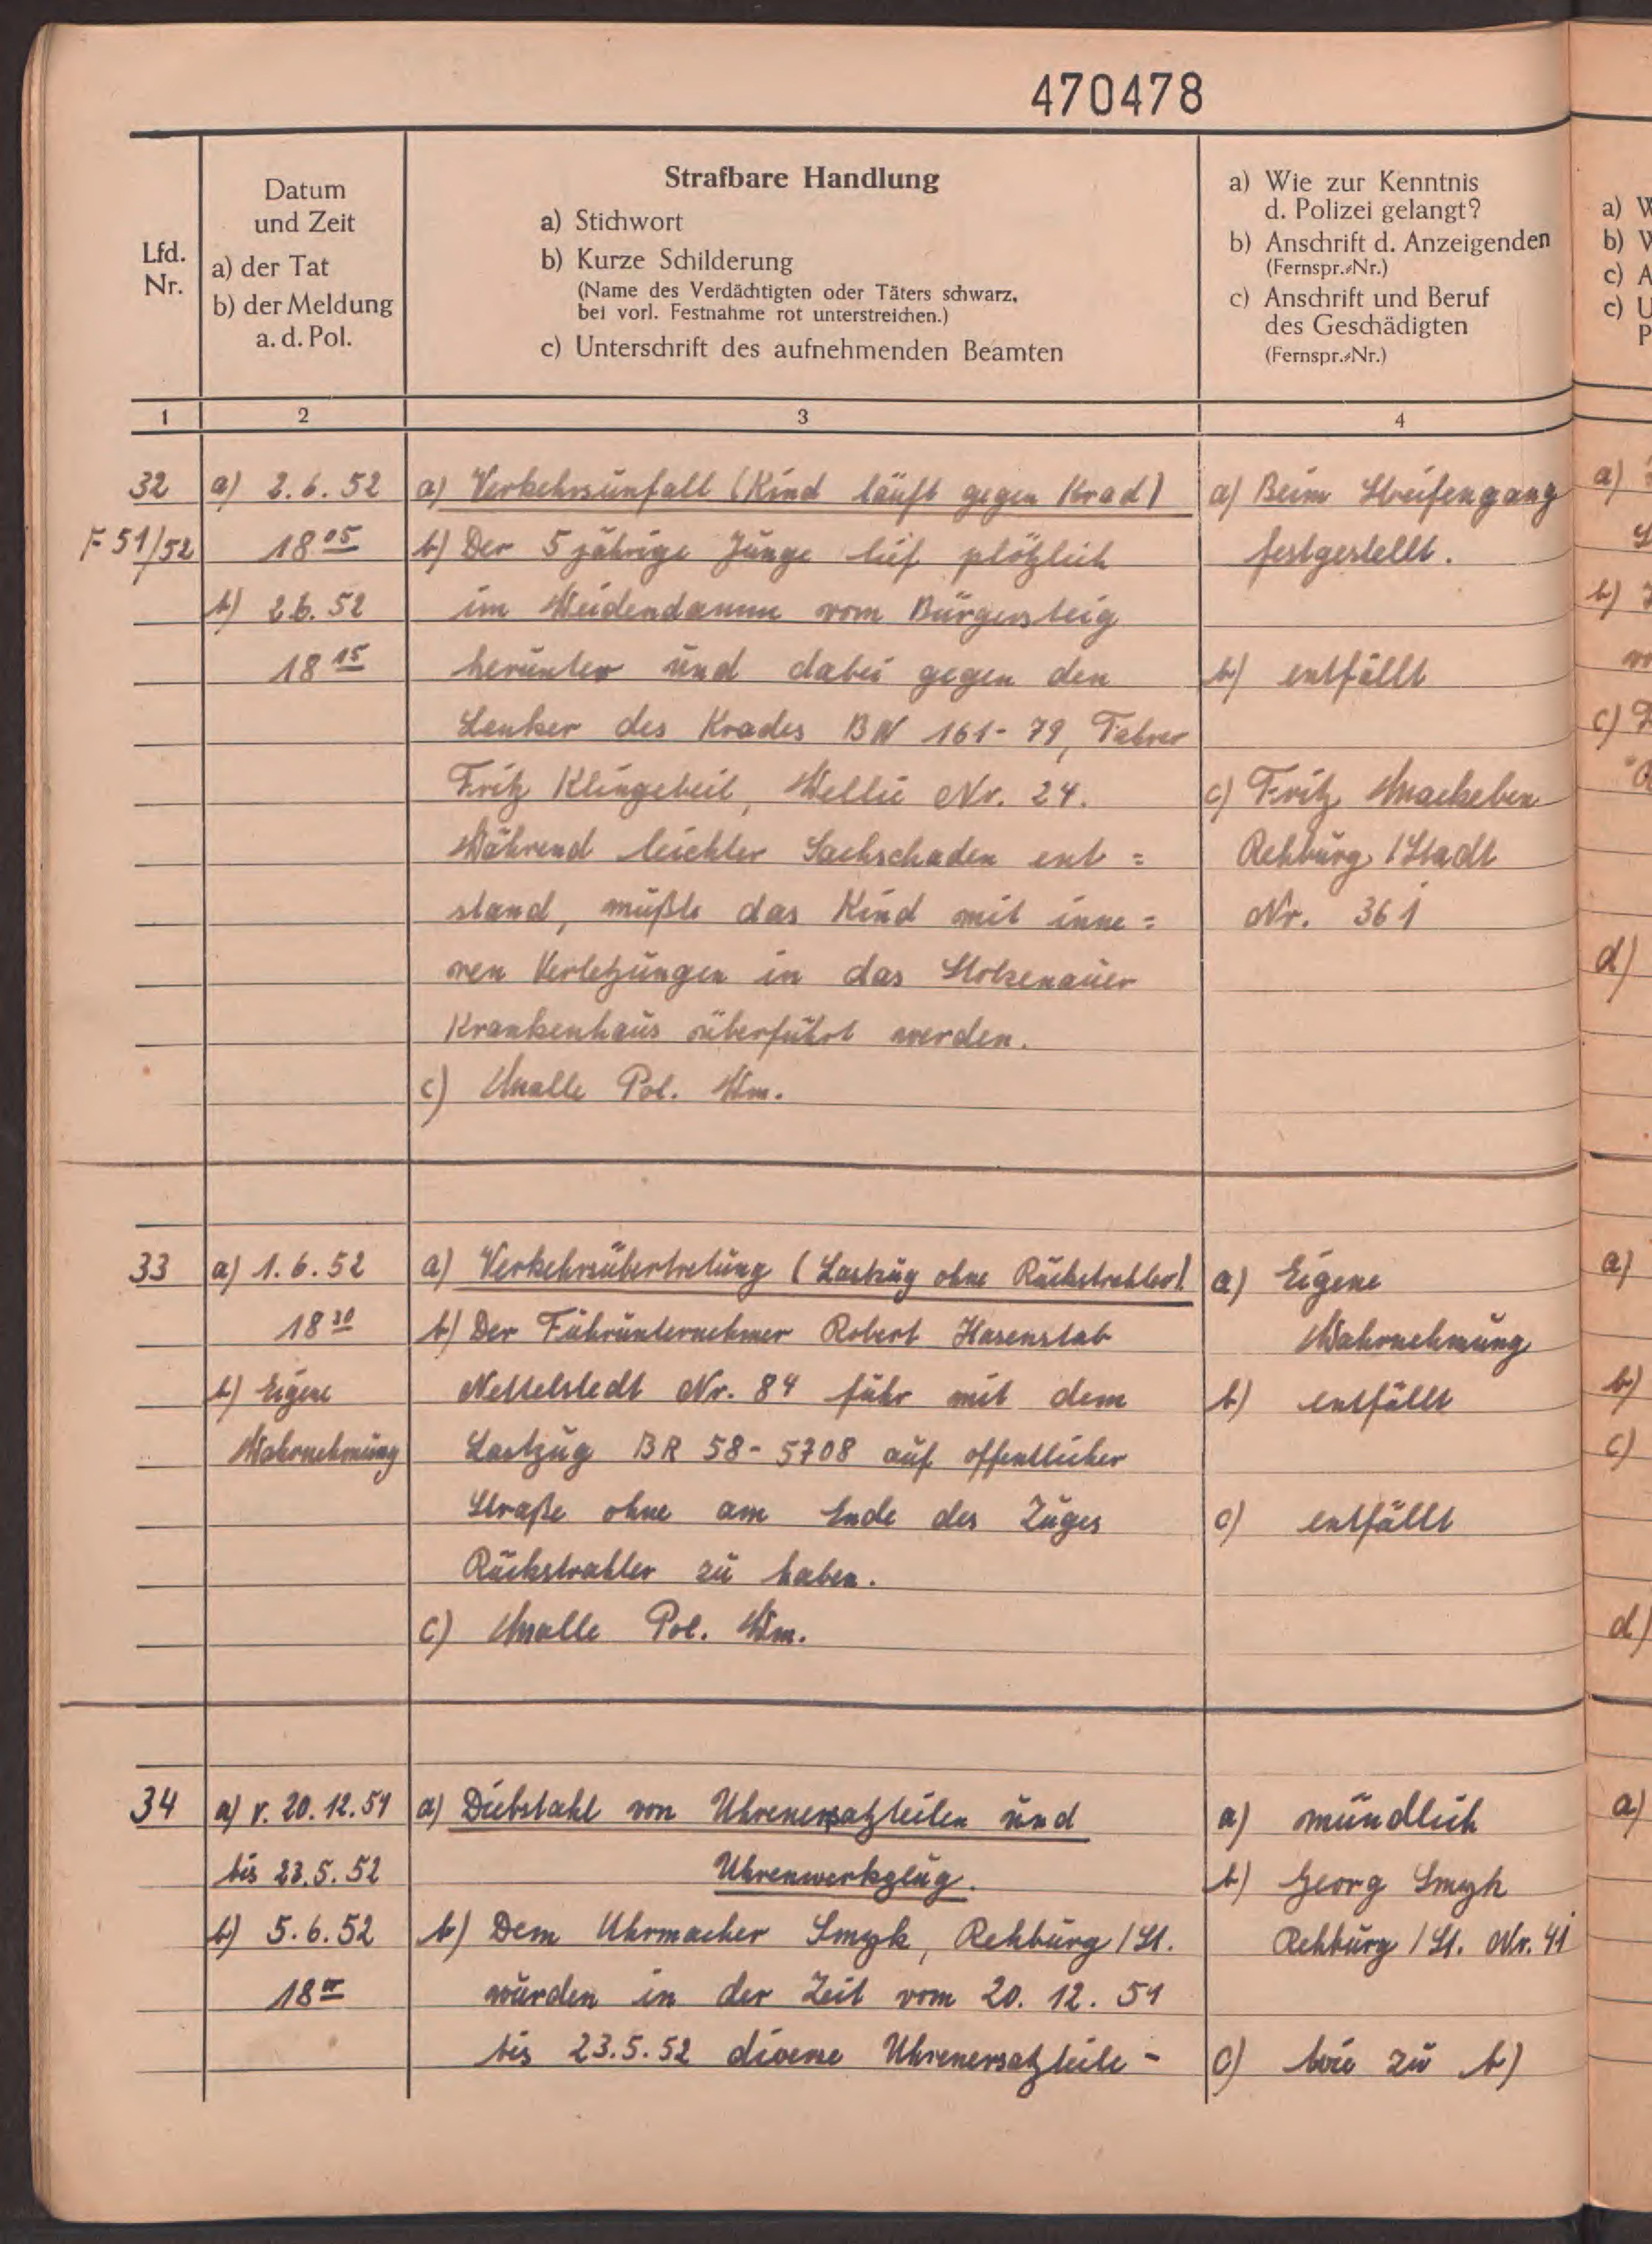 470478
Lfd.
Nr.
Datum
und Zeit
a) der Tat
b) der Meldung
a. d. Pol.
Strafbare Handlung
a) Stichwort
b) Kurze Schilderung
(Name des Verdächtigten oder Täters schwarz,
bei vorl. Festnahme rot unterstreichen.)
c) Unterschrift des aufnehmenden Beamten
a) Wie zur Kenntnis
d. Polizei gelangt?
b) Anschrift d. Anzeigenden
(Fernspr.-Nr.)
c) Anschrift und Beruf
des Geschädigten
(Fernspr.-Nr.)
1 2 3 4
32
F 51/52
a) 2.6.52
18 05
b) 2.6.52
18 15
a) Verkehrsunfall (Kind läuft gegen Krad)
b) Der 5 jährige Junge lief plötzlich
im Weidendamm vom Bürgersteig
herunter und dabei gegen den
Lenker des Krades BN 161-79, Fahrer
Fritz Klingebeil, Wellie Nr. 24.
Während leichter Sachschaden ent=
stand, mußte das Kind mit inne=
ren Verletzungen in das Stolzenauer
Krankenhaus überführt werden.
c) Malle Pol. Wm.
a) Beim Streifengang
festgestellt.
b) entfällt
c) Fritz Mackeben
Rehburg/Stadt
Nr. 361
33
a) 1.6.52
18 30
b) Eigene
Wahrnehmung
a) Verkehrsübertretung (Lastzug ohne Rückstrahler)
b) Der Fuhrunternehmer Robert Hasenstab
Nettelstedt Nr. 84 fuhr mit dem
Lastzug BR 58-5708 auf offentlicher
Straße ohne am Ende des Zuges
Rückstrahler zu haben.
c) Malle Pol. Wm.
a) Eigene
Wahrnehmung
b) entfällt
c) entfällt
34
a) v. 20.12.51
bis 23.5.52
b) 5.6.52
18 00
a) Diebstahl von Uhrenersatzteilen und
Uhrenwerkzeug.
b) Dem Uhrmacher Smyk, Rehburg/St.
wurden in der Zeit vom 20.12.51
bis 23.5.52 diverse Uhrenersatzteile-
a) mündlich
b) Georg Smyk
Rehburg/St. Nr. 41
c) wie zu b)